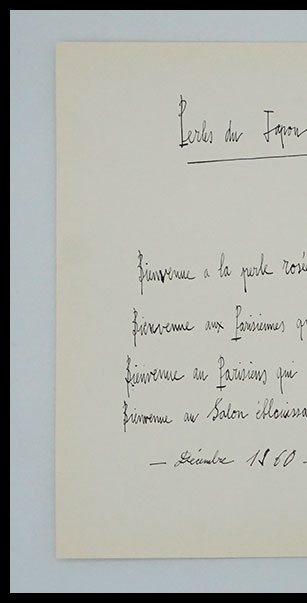 Perles du Japon
Bienvenue a la perle rosé
Bienvenue aux Parisiennes q
Bienvenue au Parisiens qui
Bienvenue au Salon éblouissa
— Décembre 1960 —